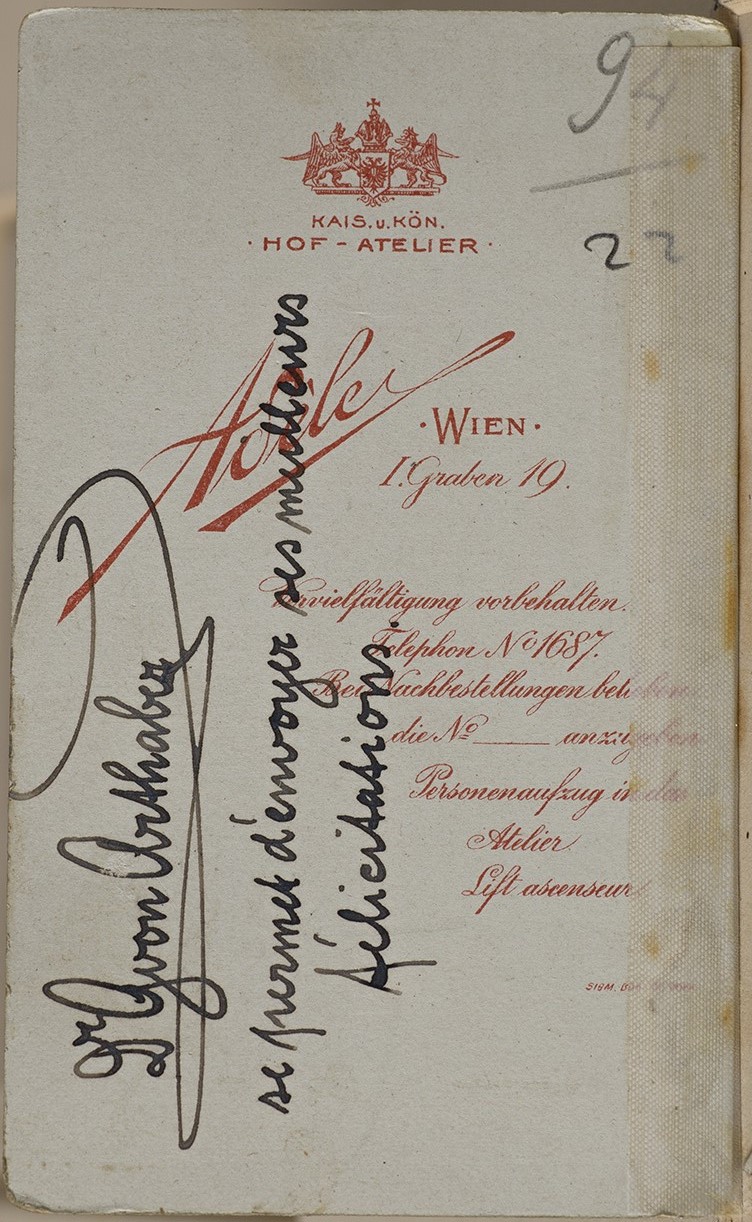 94
22
KAIS. u. KÖN.
· HOF - ATELIER ·
Adèle
· WIEN ·
I. Graben 19.
Vervielfältigung vorbehalten.
Telephon No 1687.
Bei Nachbestellungen belieben
die No ____ anzugeben
Personenaufzug in das
Atelier
Lift ascenseur
SIGM.
Dr G von Arthaber
se permet d'envoyer ses meilleurs
félicitations.